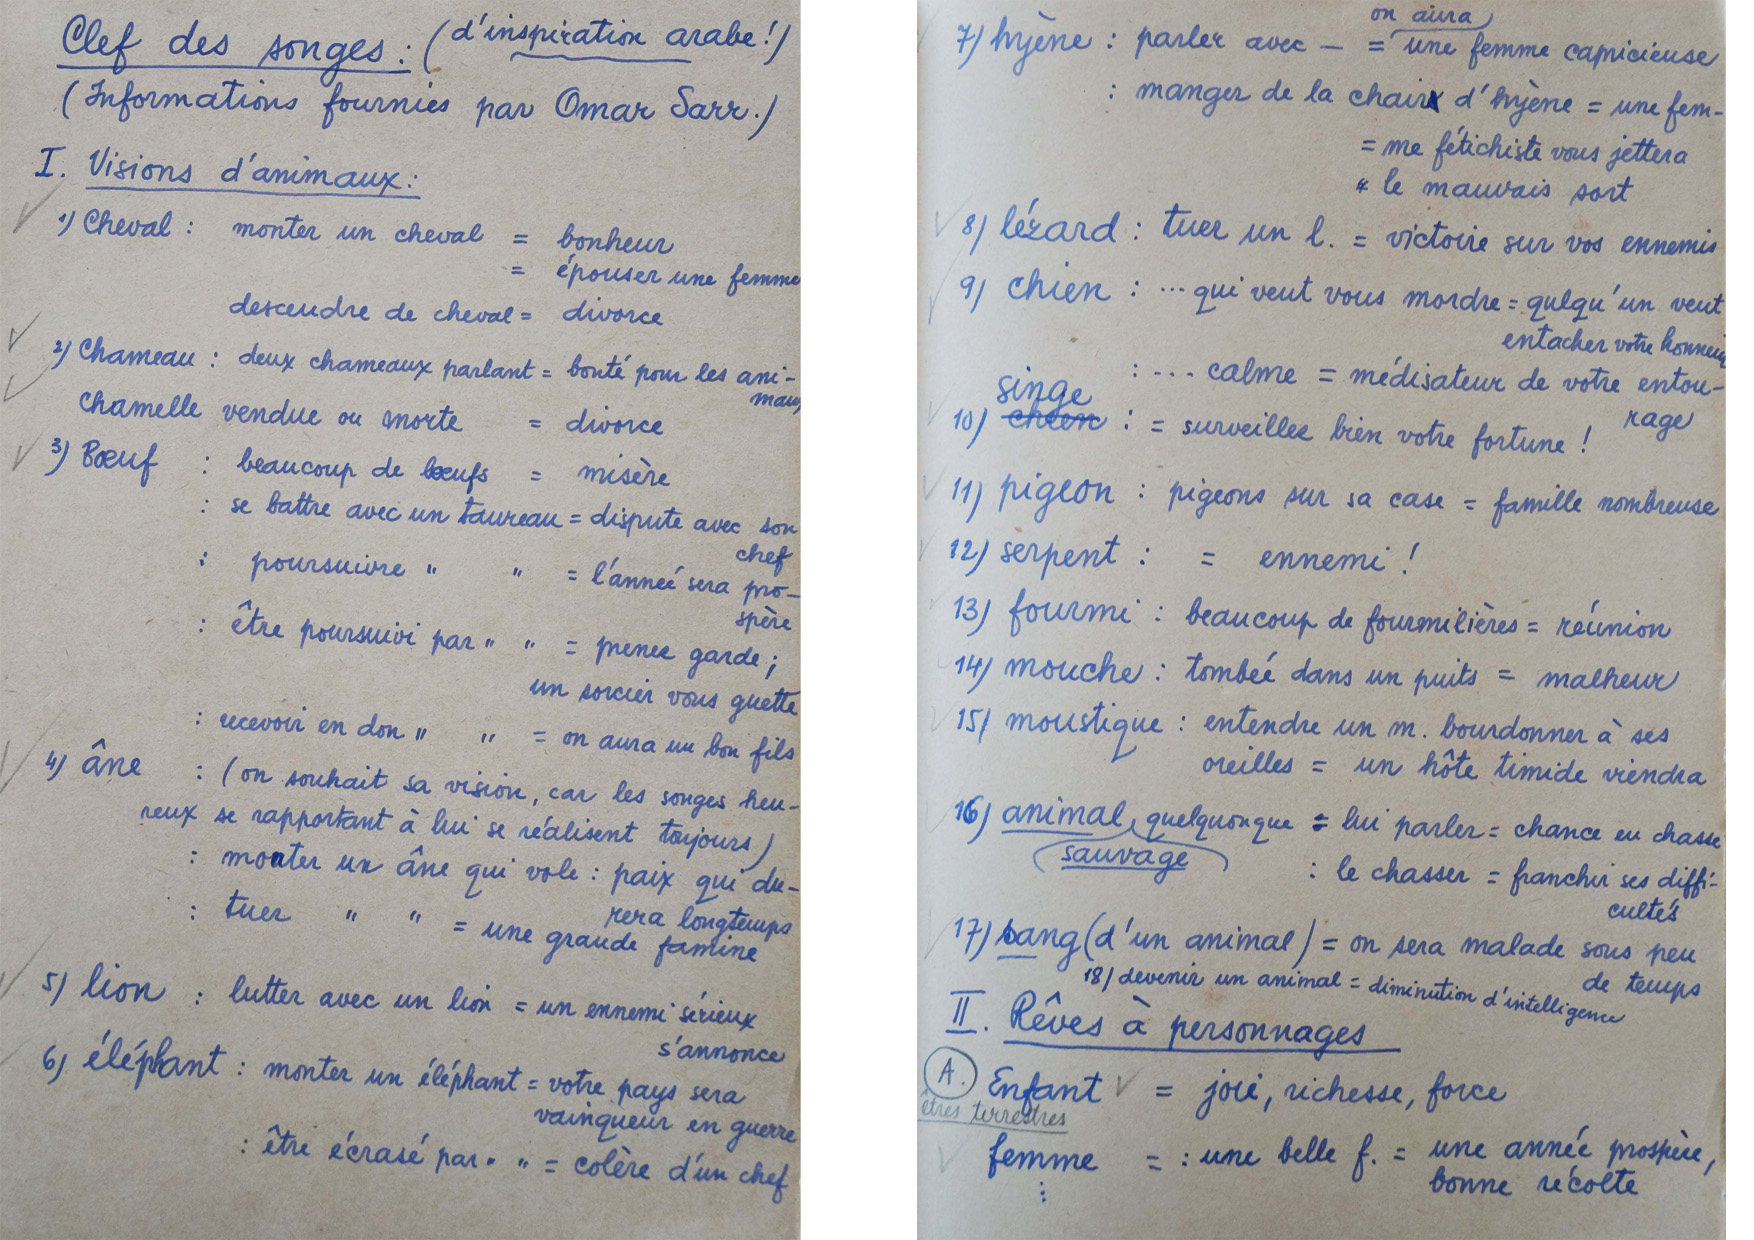 Clef des songes : (d'inspiration arabe!)
(Informations fournies par Omar Sarr.)
I. Visions d'animaux :
1) Cheval : monter un cheval = bonheur
= épouser une femme
descendre de cheval = divorce
2) Chameau : deux chameaux parlant = bonté pour les ani-
maux
chamelle vendue ou morte = divorce
3) Bœuf : beaucoup de bœufs = misère
: se battre avec un taureau = dispute avec son
chef
: poursuivre " " = l'année sera pro-
spère
: être poursuivi par " " = prenez garde ;
un sorcier vous guette
: recevoir en don " " = on aura un bon fils
4) âne : (on souhait sa vision, car les songes heu-
reux se rapportant à lui se réalisent toujours)
: monter un âne qui vole : paix qui du-
rera longtemps
: tuer " " = une grande famine
5) lion : lutter avec un lion = un ennemi sérieux
s'annonce
6) éléphant : monter un éléphant = votre pays sera
vainqueur en guerre
: être écrasé par " " = colère d'un chef
on aura
7) hyène : parler avec — = une femme capricieuse
: manger de la chair d'hyène = une fem-
= me fétichiste vous jettera
" le mauvais sort
8) lézard : tuer un l. = victoire sur vos ennemis
9) chien : ... qui veut vous mordre = qulqu'un veut
entacher votre honneur
: ... calme = médisateur de votre entou-
rage
singe
10) chien : = surveillez bien votre fortune !
11) pigeon : pigeons sur sa case = famille nombreuse
12) serpent : = ennemi !
13) fourmi : beaucoup de fourmilières = réunion
14) mouche : tombée dans un puits = malheur
15) moustique : entendre un m. bourdonner à ses
oreilles = un hôte timide viendra
16) animal, quelquonque = lui parler = chance en chasse
sauvage
: le chasser = franchir ses diffi-
cultés
17) sang (d'un animal) = on sera malade sous peu
de temps
18) devenir un animal = diminution d'intelligence
II. Rêves à personnages
A. Enfant = joie, richesse, force
êtres terrestres
femme = : une belle f. = une année prospère,
: bonne récolte